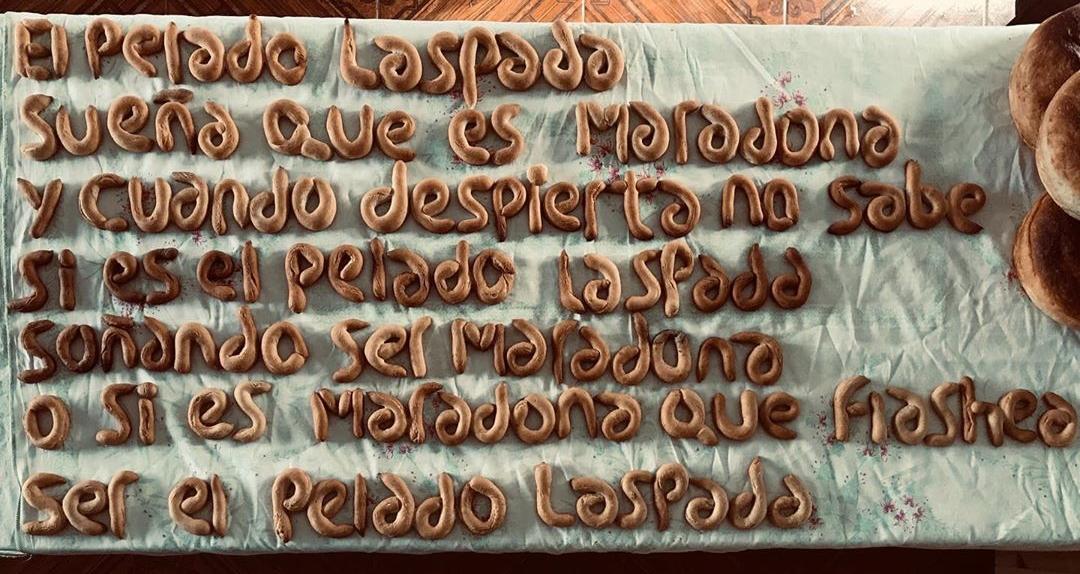 El pelado Laspada
sueña que es Maradona
y cuando despierta no sabe
si es el pelado Laspada
soñando ser Maradona
o si es Maradona que flashea
ser el pelado Laspada